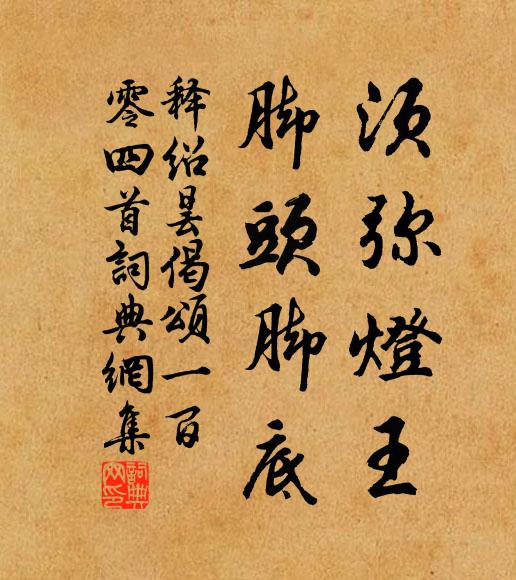 須弥燈王
脚頭脚底
释绍昙偈頌一百
零四首詞典網集
詞典网印